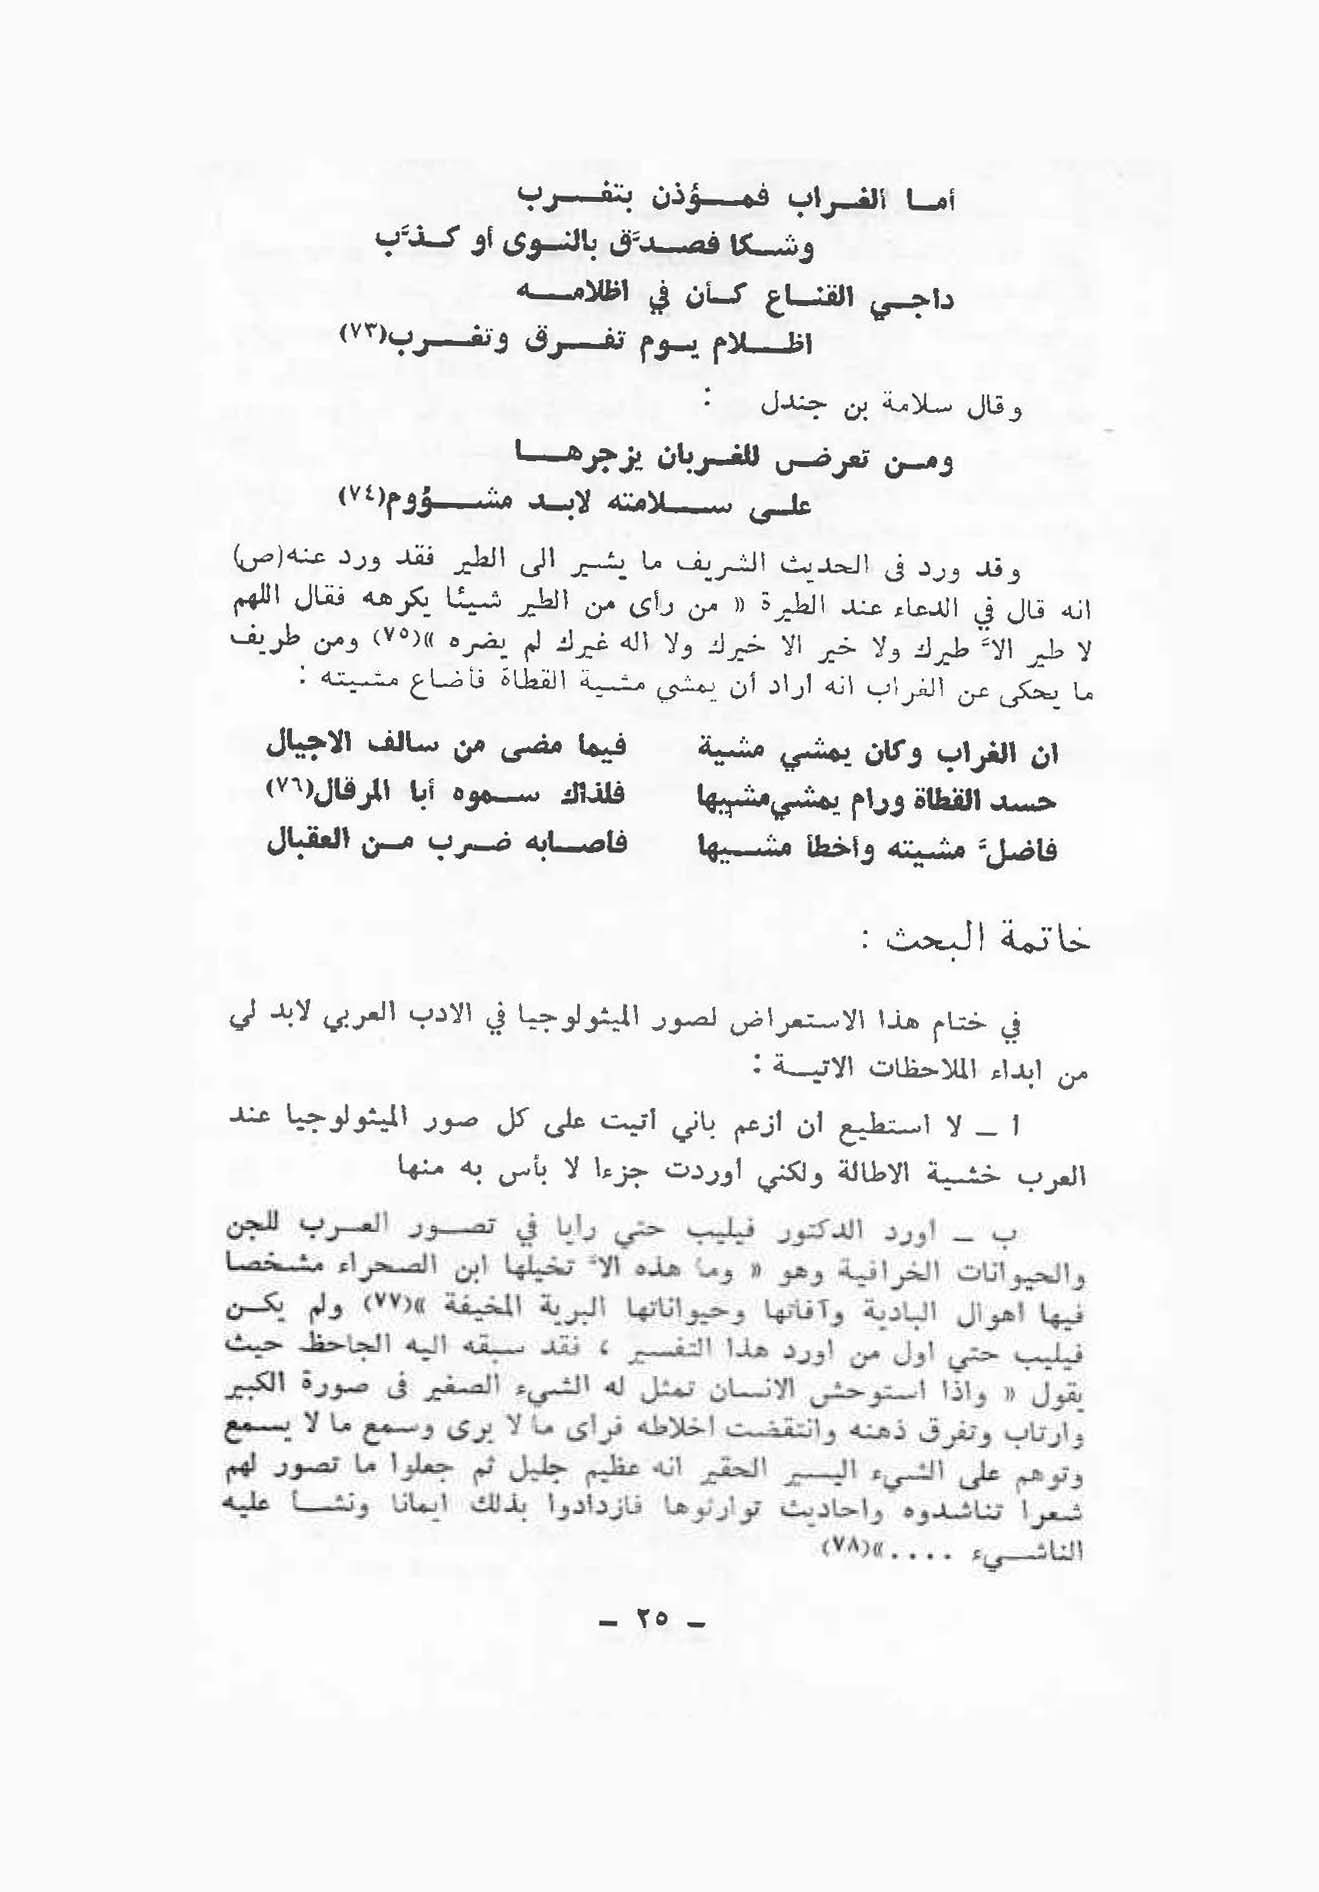 أما الغراب فمؤذن بتغرب
وشكا فصدَّق بالنوى أو كذَّب
داجي القناع كأن في اظلامه
اظلام يوم تفرق وتغرب(٧٣)
وقال سلامة بن جندل :
ومن تعرض للغربان يزجرها
على سلامته لابد مشؤوم(٧٤)
وقد ورد فى الحديث الشريف ما يشير الى الطير فقد ورد عنه(ص)
انه قال في الدعاء عند الطيرة « من رأى من الطير شيئا يكرهه فقال اللهم
لا طير الاَّ طيرك ولا خير الا خيرك ولا اله غيرك لم يضره »(٧٥) ومن طريف
ما يحكى عن الغراب انه أراد أن يمشي مشية القطاة فأضاع مشيته :
ان الغراب وكان يمشي مشية فيما مضى من سالف الاجيال
حسد القطاة ورام يمشي مشيها فلذاك سموه أبا المرقال(٧٦)
فاضلَّ مشيته وأخطأ مشيها فاصابه ضرب من العقبال
خاتمة البحث :
في ختام هذا الاستعراض لصور الميثولوجيا في الادب العربي لابد لي
من ابداء الملاحظات الاتية :
أ ــ لا استطيع ان ازعم باني اتيت على كل صور الميثولوجيا عند
العرب خشية الاطالة ولكني اوردت جزءا لا بأس به منها
ب ــ اورد الدكتور فيليب حتي رايا في تصور العرب للجن
والحيوانات الخرافية وهو « وما هذه الاَّ تخيلها ابن الصحراء مشخصا
فيها اهوال البادية وآفاتها وحيواناتها البرية المخيفة »(٧٧) ولم يكن
فيليب حتي اول من اورد هذا التفسير ، فقد سبقه اليه الجاحظ حيث
يقول « واذا استوحش الانسان تمثل له الشيء الصغير فى صورة الكبير
وارتاب وتفرق ذهنه وانتقضت اخلاطه فراى ما لا يرى وسمع ما لا يسمع
وتوهم على الشيء اليسير الحقير انه عظيم جليل ثم جعلوا ما تصور لهم
شعرا تناشدوه واحاديث توارثوها فازدادوا بذلك ايمانا ونشأ عليه
الناشيء ....»(٧٨)
ــ ٢٥ ــ